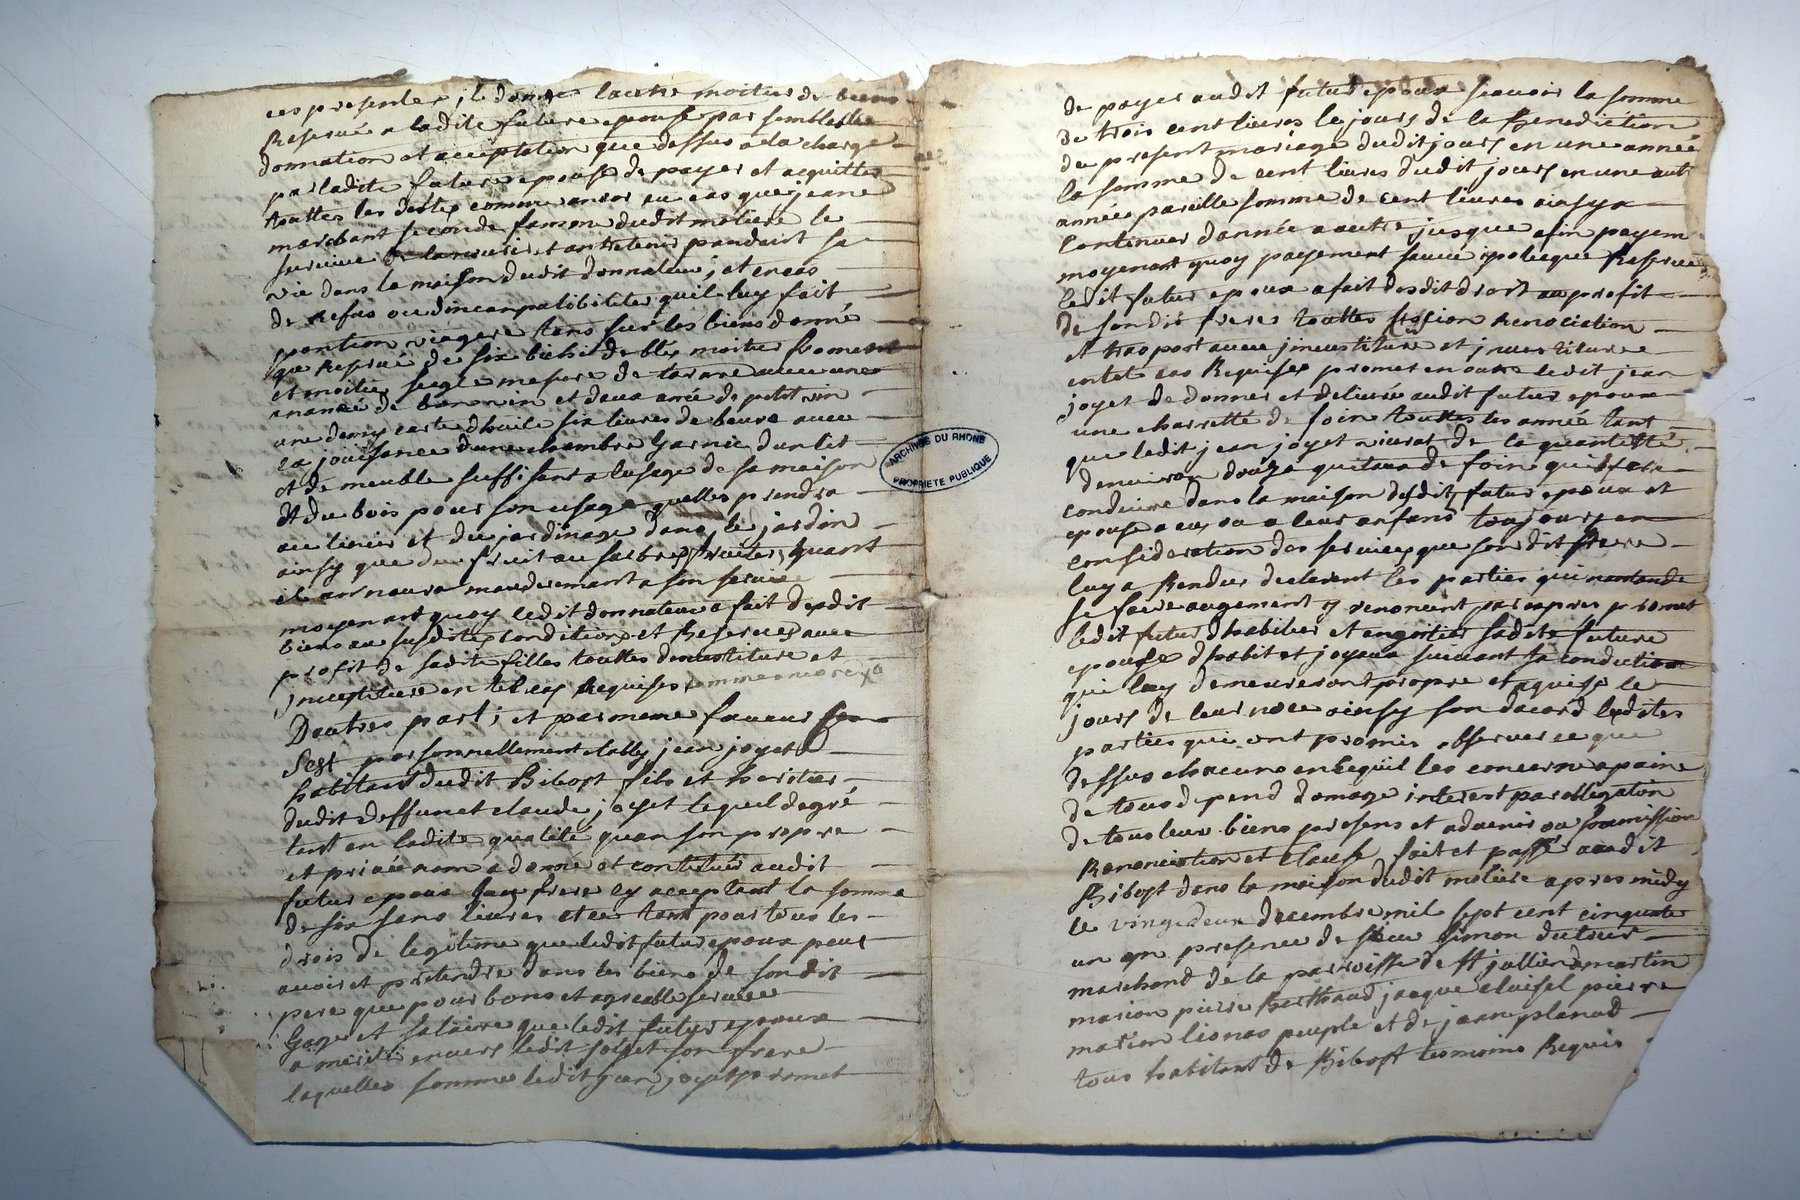 ces presentes il donne lautre moitier de biens
Reservé a ladite future epouse par semblable
donnation et acceptation que dessus a la charge
par ladite future epouse de payer et acquitter
touttes les dettes comme ansor au cas que jeane
marchant seconde famme dudit moliere le
survive de la nourir et antretenir pandant sa
vie dans la maison dudit donnateur et en cas
de Refus ou dincompatibilité quil luy fait
pantion viagere tans sur les biens donné
que Reservé de six bichet de bled moitier froment
et moitier segle mesure de tarare avec une
anannée de bon vin et deux anée de petit vin
une demy carte dhuile six livres de beure avec
la jouisance dune chambre Garnie dun let
et de meuble suffisant a lusage de sa maison
et du bois pour son usage quelles prendra
au linier et du jardinage dans le jardin
ainsy que du fruit au harbres fruitiers quant
il an naura mauderemant a son service
moyenant quoy ledit donnateur a fait desdit
biens au susdites conditions et Reserves avec
profit de sadite filles touttes devestiture et
Investiture en tel cas Requises
Dautres part et par meme faveur
Sest parsonnellement etably jean joyet
habitant dudit Ribost fils et heritier
dudit deffunct claude joyet lequel de gré
tant en ladite qualité quan son propre
et privé nom a donné et contitué audit
futur epoux son frere cy acceptant la somme
de six sans livres et ce tant pour tous les
drois de legitime que ledit futur epoux peut
avoir et pretendre dans les biens de son dit
pere que pour bons et agreable service
Gages et salaire que ledit futur epoux
a merité envers ledit joyet son frere
laquelles somme ledit jean joyet promet
de payer audit futur epoux scavoir la somme
de trois cent livres le jours de la Benediction
du present mariage dudit jours en une année
la somme de cent livres dudit jours en une aut
année pareille somme de cent livres ainsy a
continuer dannée a autre jusque a fin payem
moyenant quoy payement sauve ipoteque Reservé
ledit futur epoux a fait desdit droit au profit
de son dit freres touttes session Renociation
et trasport avec jinvestiture et jnvestiture
en tel cas Requises promet en outre ledit jean
joyet de donner et delivré audit futur epoux
une charretté de foin touttes les année tant
que ledit jean joyet vivrat de la quantité
denviron douze quitaux de foin quil fera
conduire dans la maison desdits futur epoux et
epouse a eux ou a leur anfans toujours en
consideration des services que son dit frere
luy a Rendus declarent les parties qui nantande
se faire augement y renoncent par expres promet
ledit futur dhabilier et enjoilier sadite future
epouse dhabit et joyaux suivant sa condition
qui luy demeureront propre et aquise le
jours de leur noce ainsy son dacord lesdites
parties qui ont promis observer ce que
dessus chacune en ce quil les concerne a paine
de tous depend domage interest par obligation
de tous leur biens presens et advenir ou soumission
Renonciation et clause fait et passé audit
Ribost dans la maison dudit moliere apres midy
le vingt deux decembre mil sept cent cinquate
un en presence de sieur Simon dutour
marchand de la parroisse de St jullien martin
marion pierre Berthaud jacque clusel pierre
marion lionas peuple et de jean planud
tous habitant de Ribost temoins Requis
ARCHIVES DU RHONE
PROPRIETE PUBLIQUE